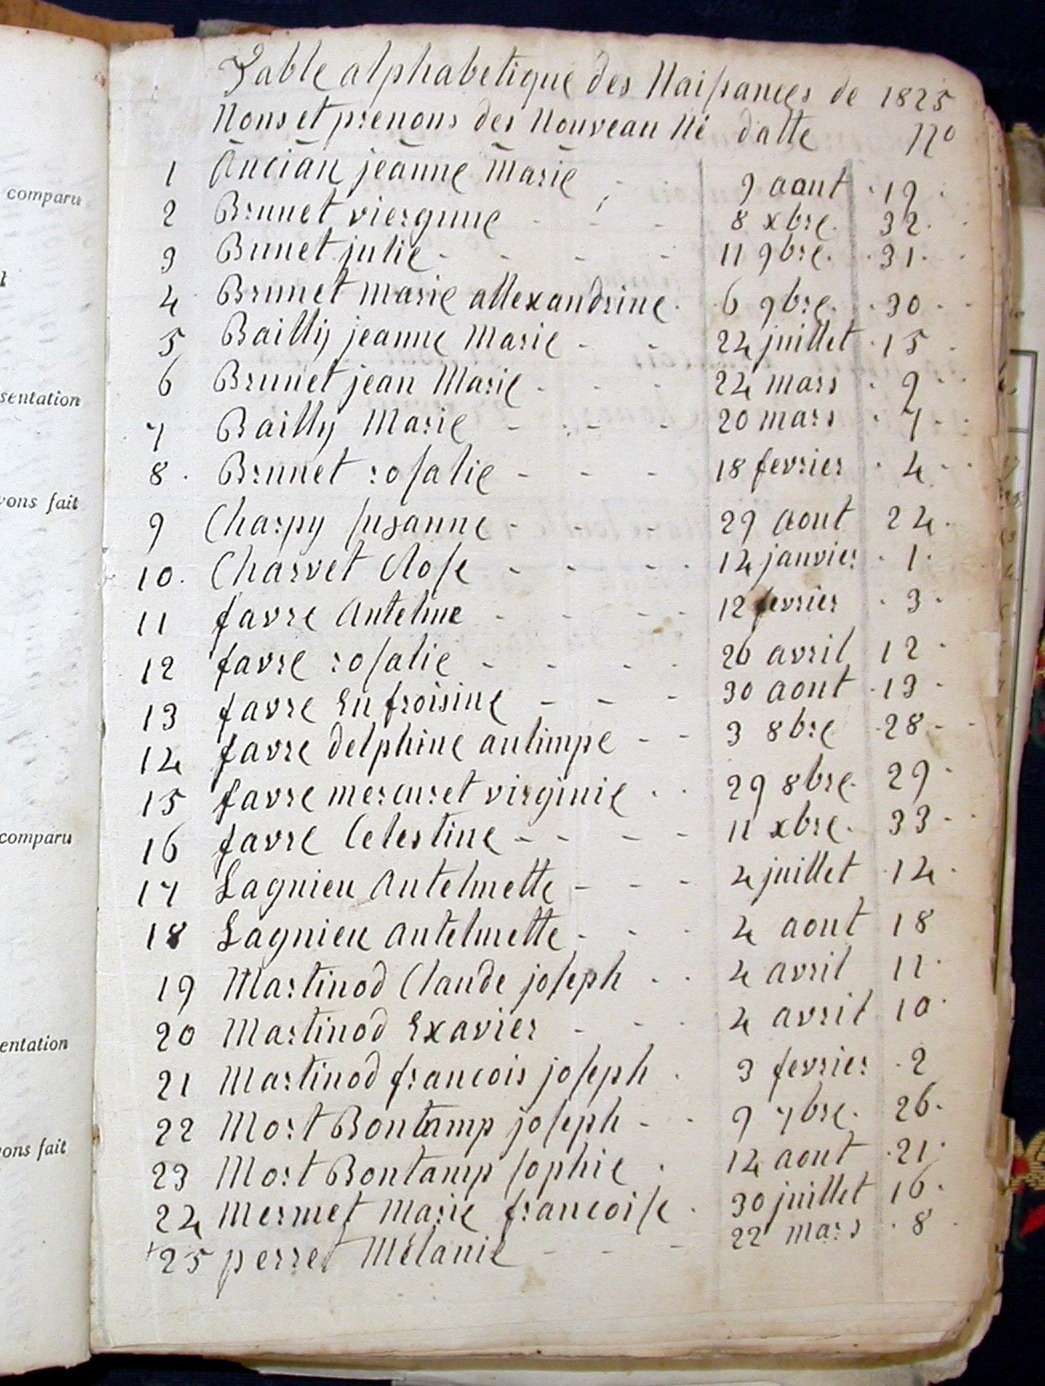 comparu
sentation
vons fait
comparu
entation
ons fait
Table alphabetique des Naissances de 1825
Nons et prenons des Nouveau Né datte No
1 Ancian jeanne Marie 9 aout 19
2 Brunet viergine 8 xbre 32
3 Bunet julie 11 9bre 31
4 Brunet marie allexandrine 6 9bre 30
5 Bailly jeanne Marie 24 juillet 15
6 Brunet jean Marie 24 mars 9
7 Bailly Marie 20 mars 7
8 Brunet rosalie 18 fevrier 4
9 Charpy susanne 29 aout 24
10 Charvet Rose 14 janvier 1
11 favre Antelme 12 fevrier 3
12 favre rosalie 26 avril 12
13 favre Enfroisine 30 aont 13
14 favre delphine aulimpe 3 8bre 28
15 favre mercuret virginie 29 8bre 29
16 favre Celestine 11 xbre 33
17 Lagnieu Antelmette 4 juillet 14
18 Lagnieu Antelmette 4 aout 18
19 Martinod Claude joseph 4 avril 11
20 Martinod Exavier 4 avril 10
21 Martinod francois joseph 3 fevrier 2
22 Mort Bontamp joseph 9 7bre 26
23 Mort Bontamp sophie 14 aout 21
24 Mermet Marie francoise 30 juillet 16
25 perret Mélanie 22 mars 8